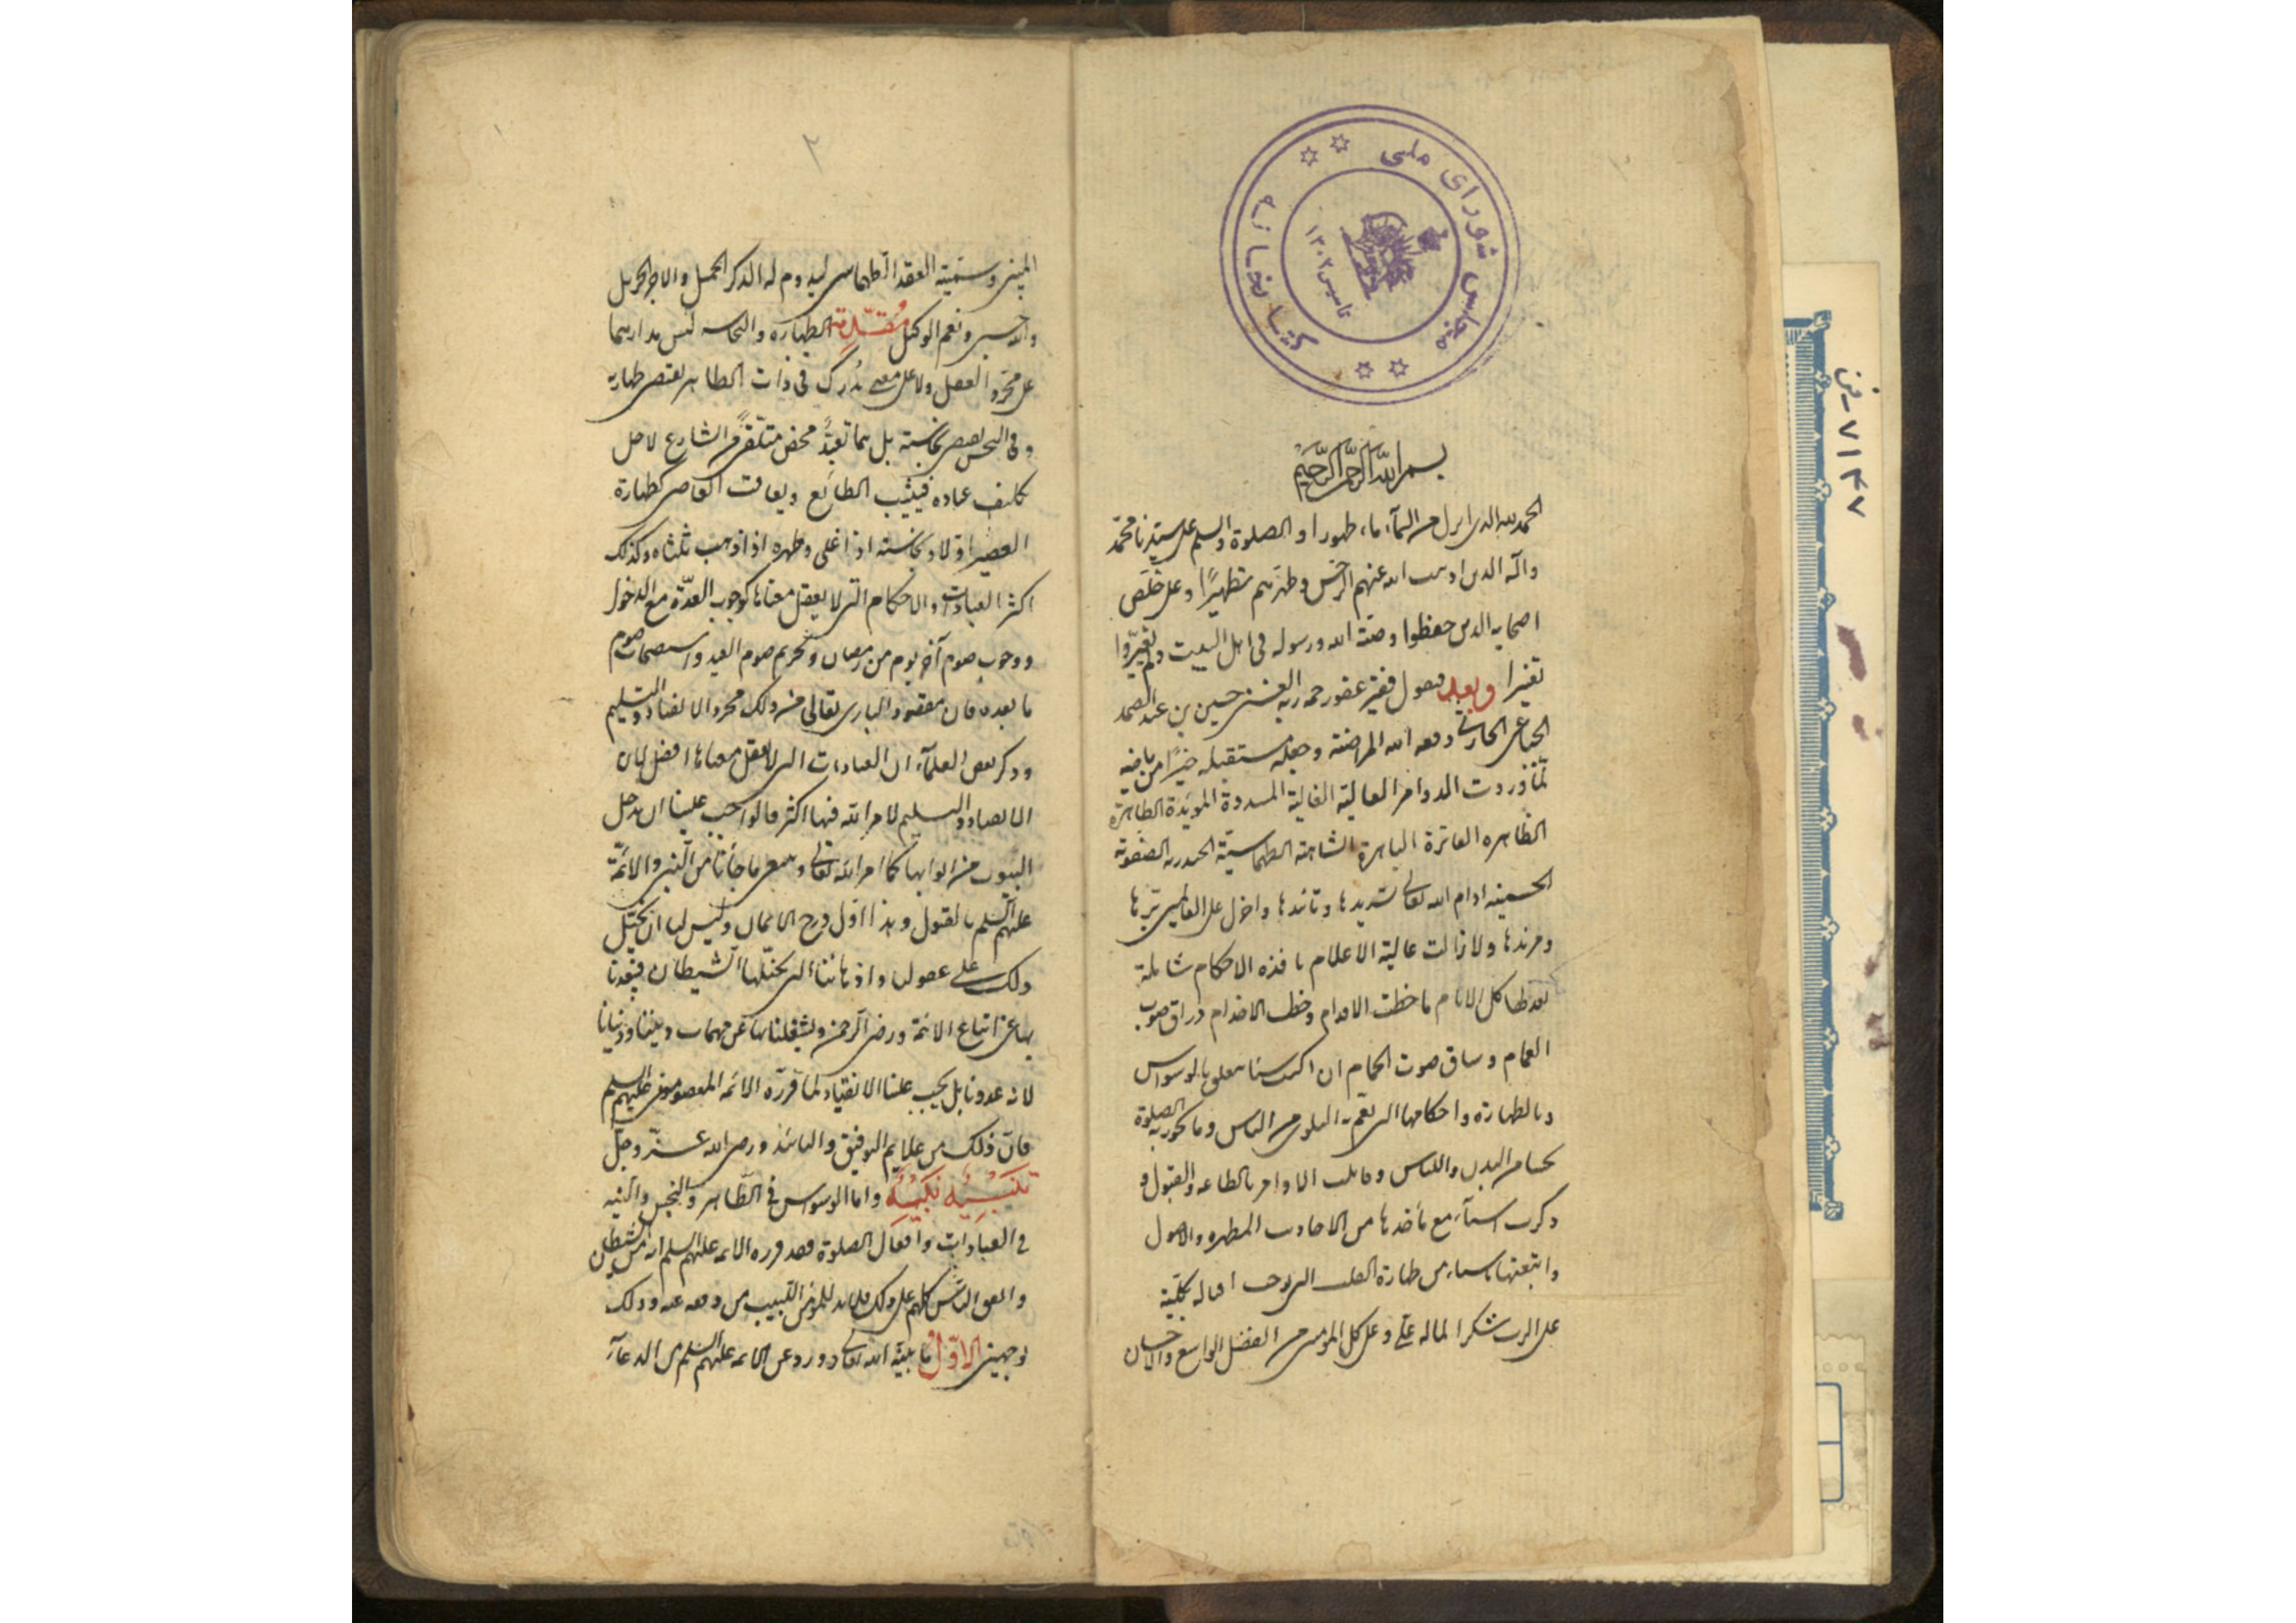 كتابخانه
مجلس شورای ملی
تاسیس ۱۳۰۲
بسم الله الرحمن الرحیم
الحمد لله الذی انزل من السمآء ماء طهورا و الصلوة و السلم علی سیدنا محمد
وآله الذین اذهب الله عنهم الرجس وطهرهم تطهیرًا وعلی خلّص
اصحابه الذین حفظوا وصیّة الله ورسوله فی اهل البیت ولم یغیّروا
تغییرا وبعد فیقول فقیر عفو رحمة ربه الغنی حسین بن عبد الصمد
الحباعی الحارثی وفقه الله لمراضیه وجعل مستقبله خیرًا من ماضیه
لمّا وردت الاوامر العالیة الغالیة المسددة المویّدة الطاهرة
الظاهره الفاخرة الباهرة الشاهیة الطهماسبیّة الحیدریه الصفویه
الحسینیه ادام الله تعالی تسدیدها وتائدها واجزل علی العالمین برّها
ومزیدها ولا زالت عالیة الاعلام نافذه الاحكام شاملة
كل الانام ما خطت الاقدام وخطت الاقلام وراق صوب
الغمام وساق صوت الحمام ان اكتب شیئا یتعلق بالوسواس
وبالطهارة واحكامها التی تعمّ به البلوی من الناس وما الصلوة
البدن واللباس وقابلت الاوامر بالطاعه والقبول و
ذكرت اشیآء مع مأخذها من الاحادیث المطهره والاصول
واتبعتها باشیاء من طهارة القلب اقباله بكلیّته
علی الرب شكرا لما له علیّ وعلی كل المؤمنین من الفضل الواسع والاحسان
۲
المبین وسمّیته العقد الطهماسبی لیدوم له الذكر الجمیل والاجر الجزیل
والله حسبی ونعم الوكیل مُقدّمة الطهارة والنجاسه لیس مدارهما
علی مجرّد العقل ولا علی معنی یُدرك فی ذات الطاهر یقتضی طهارته
وفی النجس یقتضی نجاسته بل هما تعبّدٌ محض متلقّی من الشارع لاجل
تكلیف عباده فیثیب الطائع ویعاقب العاصی كطهارة
العصیر اوّلا ونجاسته اذا غلی وطهره اذا ذهب ثلثاه وكذلك
اكثر العبادات والاحكام التی لا یعقل معناها كوجوب العدّة مع الدخول
ووجوب صوم آخر یوم من رمضان وتحریم صوم العید واستحباب صوم
ما بعده فان مقصود الباری تعالی من ذلك مجرد الانقیاد والتسلیم
وذكر بعض العلمآء ان العبادات التی لا یعقل معناها افضل لان
الانقیاد والتسلیم لامر الله فیها اكثر فالواجب علینا ان ندخل
البیوت من ابوابها كما امر الله تعالی ما جاءنا من النبی والائمّة
علیهم السلم بالقبول وهذا اوّل درج الایمان ولیس لنا ان نحیل
ذلك علی عقولنا واذهاننا التی الشیطان
بها عن اتباع الائمة ورضی الرحمن ویشغلنا بها عن مهمات دیننا ودنیانا
لانه عدونا بل یجب علینا الانقیاد لما قرّره الائمه المعصومون علیهم السلم
فانّ ذلك من علایم التوفیق والتائید ورضی الله عزّ وجلّ
واما الوسواس فی الطّاهر والنجس والنیه
فی العبادات وافعال الصلوة فقد قرره الائمه علیهم السلم انه من الشیطان
واتفق النّاس كلهم علی ذلك فلابد للمؤمن اللبیب من دفعه عنه وذلك
بوجهین الاوّل ما بیّنه الله تعالی وورد عن الائمه علیهم السلم من الدعآء